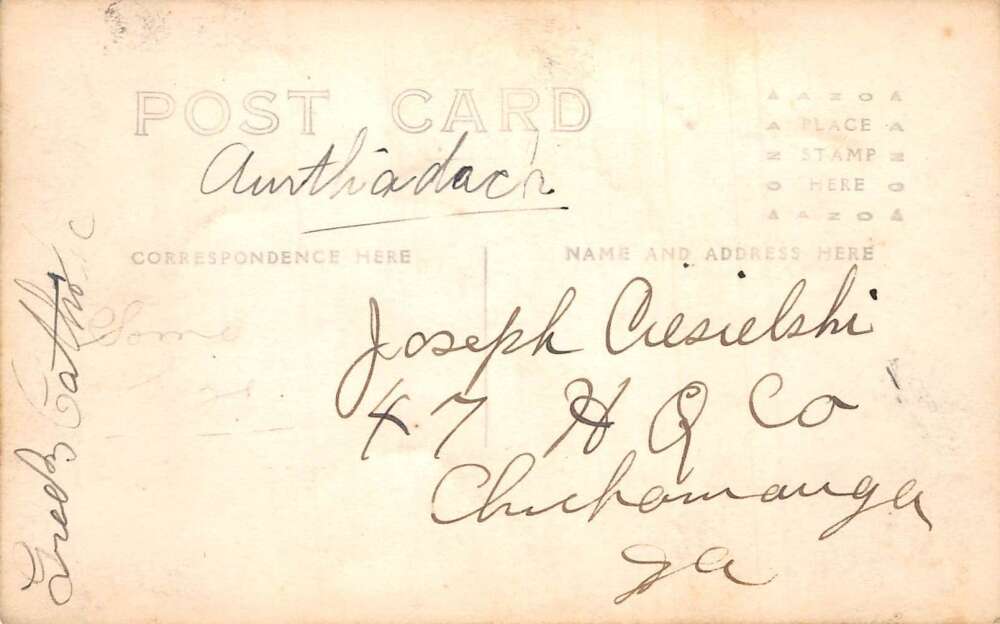 POST CARD
AZO
PLACE
STAMP
HERE
AZO
Aurthiadach
CORRESPONDENCE HERE
NAME AND ADDRESS HERE
Some
Joseph Ciesielski
47 H Q Co
Chickamauga
Ga
Greek Catholic